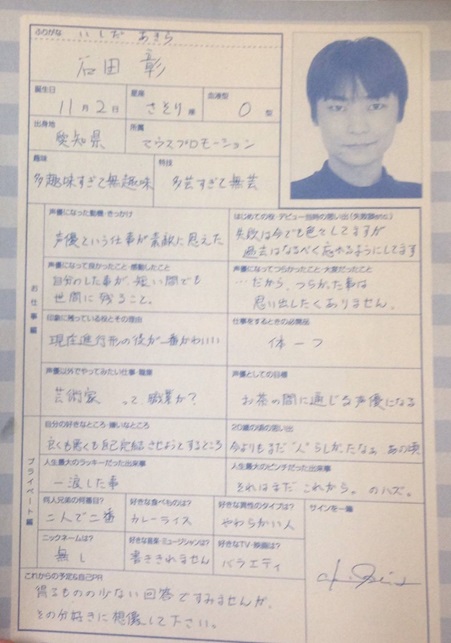 ふりがな いしだ あきら
石田 彰
誕生日 11月2日 星座 さそり座 血液型 O型
出身地 愛知県 所属 マウスプロモーション
趣味 多趣味すぎて無趣味 特技 多芸すぎて無芸
お仕事編
声優になった動機・きっかけ
声優という仕事が素敵に思えた
はじめての役・デビュー当時の思い出(失敗談etc.)
失敗は今でも色々してますが
過去はなるべく忘れるようにしてます
声優になって良かったこと・感動したこと
自分のした事が、短い間でも
世間に残ること。
声優になってつらかったこと・大変だったこと
…だから、つらかった事は
思い出したくありません。
印象に残っている役とその理由
現在進行形の役が一番かわいい
仕事をするときの必需品
体一つ
声優以外でやってみたい仕事・職業
芸術家 って職業か?
声優としての目標
お茶の間に通じる声優になる
プライベート編
自分の好きなところ・嫌いなところ
良くも悪くも自己完結させようとするところ
20歳の頃の思い出
今よりもまだ“人”らしかったなぁ あの頃
人生最大のラッキーだった出来事
一浪した事
人生最大のピンチだった出来事
それはまだこれから。のハズ。
何人兄弟の何番目?
二人で二番
好きな食べものは?
カレーライス
好きな異性のタイプは?
やわらかい人
サインを一筆
ニックネームは?
無し
好きな音楽・ミュージシャンは?
書ききれません
好きなTV・映画は?
バラエティ
これからの予定&自己PR
得るものの少ない回答ですみませんが、
その分好きに想像して下さい。